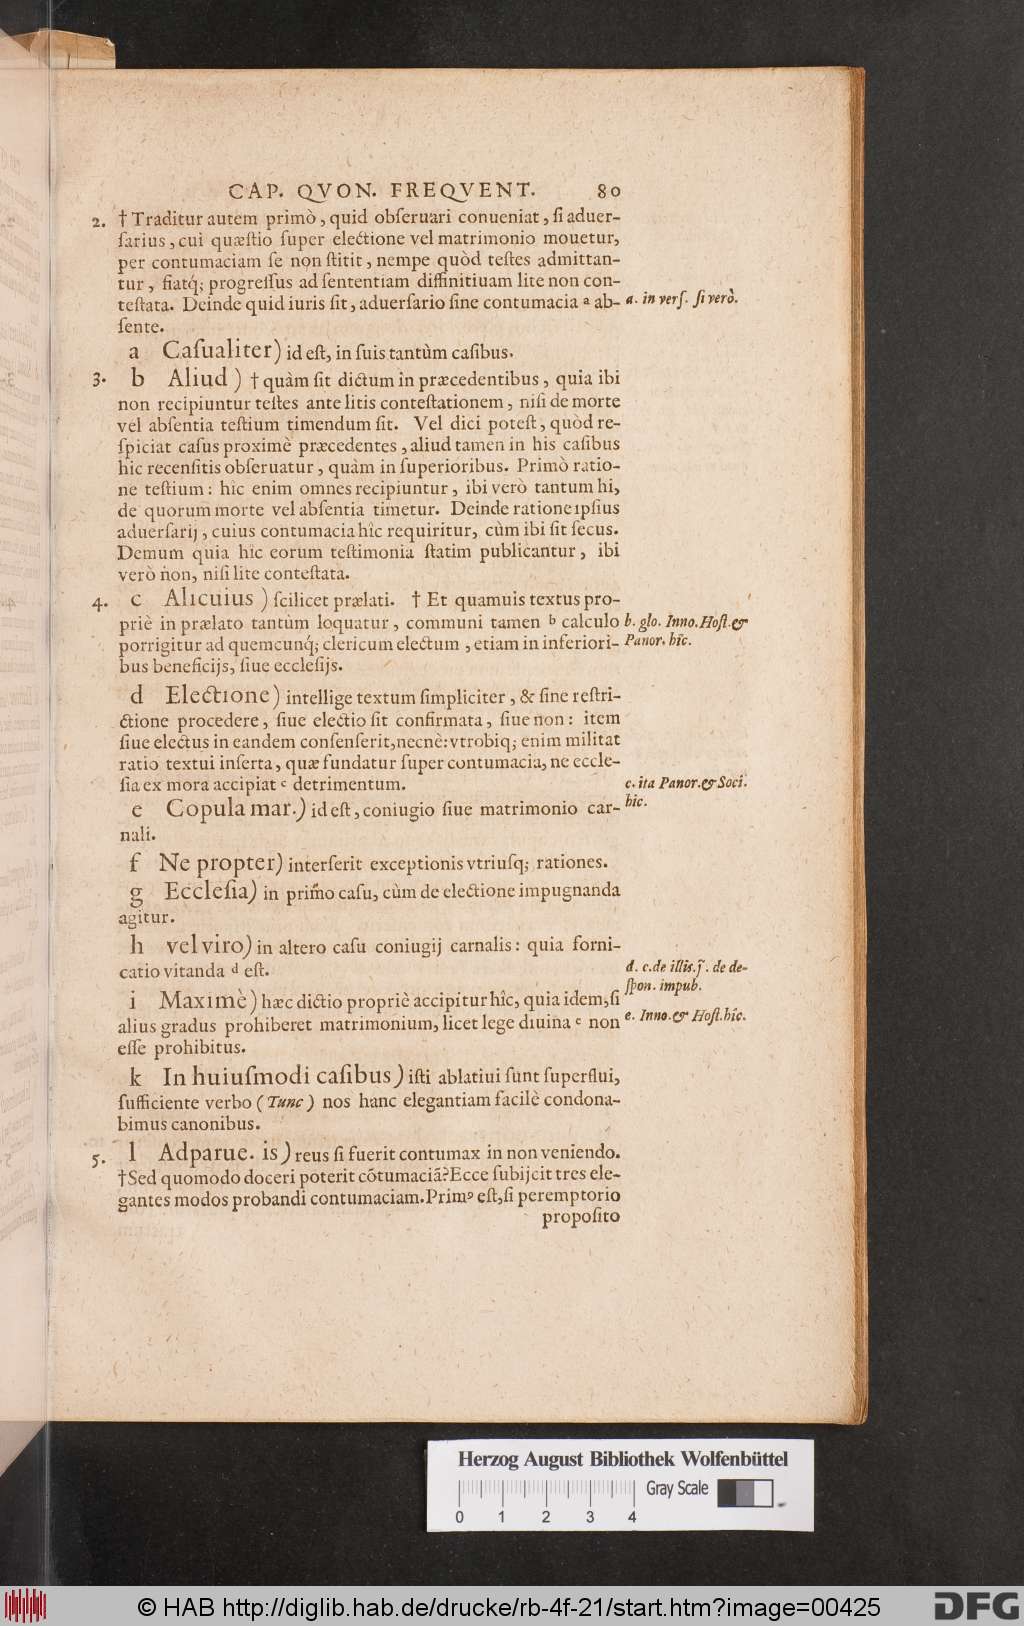 CAP. QVON. FREQVENT. 80
2. † Traditur autem primò, quid obſeruari conueniat, ſi aduer-
ſarius, cui quæſtio ſuper electione vel matrimonio mouetur,
per contumaciam ſe non ſtitit, nempe quòd teſtes admittan-
tur, fiatq́; progreſſus ad ſententiam diffinitiuam lite non con-
teſtata. Deinde quid iuris ſit, aduerſario ſine contumacia ª ab-
a. in verſ. ſi verò.
ſente.
a Caſualiter) id eſt, in ſuis tantùm caſibus.
3. b Aliud) † quàm ſit dictum in præcedentibus, quia ibi
non recipiuntur teſtes ante litis conteſtationem, niſi de morte
vel abſentia teſtium timendum ſit. Vel dici poteſt, quòd re-
ſpiciat caſus proximè præcedentes, aliud tamen in his caſibus
hic recenſitis obſeruatur, quàm in ſuperioribus. Primò ratio-
ne teſtium: hic enim omnes recipiuntur, ibi verò tantum hi,
de quorum morte vel abſentia timetur. Deinde ratione ipſius
aduerſarij, cuius contumacia hîc requiritur, cùm ibi ſit ſecus.
Demum quia hic eorum teſtimonia ſtatim publicantur, ibi
verò non, niſi lite conteſtata.
4. c Alicuius) ſcilicet prælati. † Et quamuis textus pro-
priè in prælato tantùm loquatur, communi tamen ᵇ calculo
b. glo. Inno. Hoſt. &
porrigitur ad quemcunq́; clericum electum, etiam in inferiori-
Panor. hîc.
bus beneficijs, ſiue eccleſijs.
d Electione) intellige textum ſimpliciter, & ſine reſtri-
ctione procedere, ſiue electio ſit confirmata, ſiue non: item
ſiue electus in eandem conſenſerit, necnè: vtrobiq; enim militat
ratio textui inſerta, quæ fundatur ſuper contumacia, ne eccle-
ſia ex mora accipiat ᶜ detrimentum.
c. ita Panor. & Soci.
hic.
e Copula mar.) id eſt, coniugio ſiue matrimonio car-
nali.
f Ne propter) interſerit exceptionis vtriuſq; rationes.
g Eccleſia) in primo caſu, cùm de electione impugnanda
agitur.
h vel viro) in altero caſu coniugij carnalis: quia forni-
catio vitanda ᵈ eſt.
d. c. de illis. j. de de-
ſpon. impub.
i Maximè) hæc dictio propriè accipitur hîc, quia idem, ſi
alius gradus prohiberet matrimonium, licet lege diuina ᵉ non
e. Inno. & Hoſt. hîc.
eſſe prohibitus.
k In huiuſmodi caſibus) iſti ablatiui ſunt ſuperflui,
ſufficiente verbo (Tunc) nos hanc elegantiam facilè condona-
bimus canonibus.
5. l Adparue. is) reus ſi fuerit contumax in non veniendo.
† Sed quomodo doceri poterit cõtumaciã? Ecce ſubijcit tres ele-
gantes modos probandi contumaciam. Primꝰ eſt, ſi peremptorio
propoſito
Herzog August Bibliothek Wolfenbüttel
Gray Scale
0 1 2 3 4
© HAB http://diglib.hab.de/drucke/rb-4f-21/start.htm?image=00425
DFG